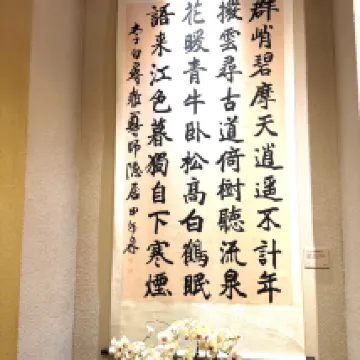 群峭碧摩天逍遥不計年
撥雲尋古道倚樹聽流泉
花暖青牛卧松高白鶴眠
語来江色暮獨自下寒煙
李白尋雍尊師隱居